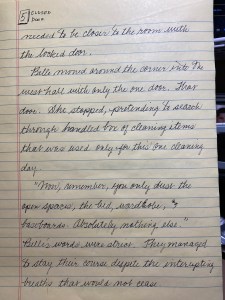 5 Closed
Door
needed to be closer to the room with
the locked door.
Belle moved around the corner into the
west hall with only the one door. That
door. She stopped, pretending to search
through handled box of cleaning items
that was used only for this one cleaning
day.
"Now, remember, you only dust the
open spaces, the bed, wardrobe, &
baseboards. Absolutely nothing else."
Belle's words were strict. They managed
to stay their course despite the interrupting
breaths that would not cease